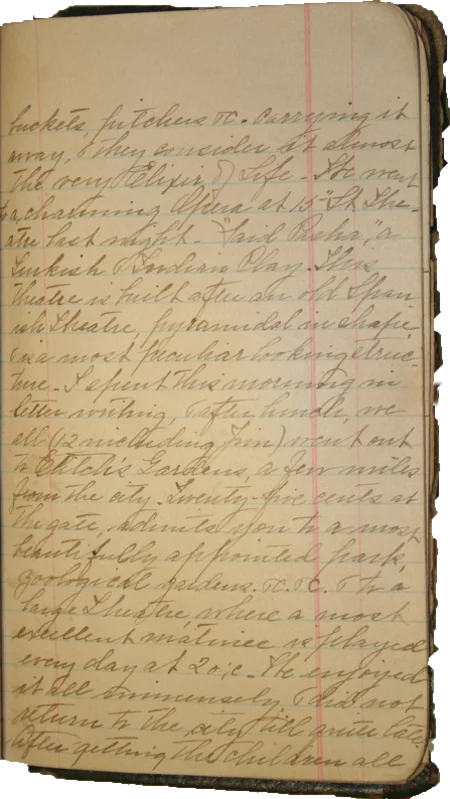 buckets, pitchers &c. carrying it
away, & they consider it almost
the very Elixir of Life - We went
to a charming Opera at 15" St. The-
atre last night - "Said Pasha," a
Turkish & Indian Play. This
theatre is built after an old Span-
ish Theatre, pyramidal in shape
& is a most peculiar looking struc-
ture - I spent this morning in
letter writing, & after lunch, we
all (12 including Jim) went out
to Elitch's Gardens, a few miles
from the city. Twenty-five cents at
the gate, admits you to a most
beautifully appointed park,
zoological gardens. &c. &c. & to a
large Theatre where a most
excellent matinee is played
every day at 2 o;c - We enjoyed
it all immensely & did not
return to the city till quite late.
After getting the children all